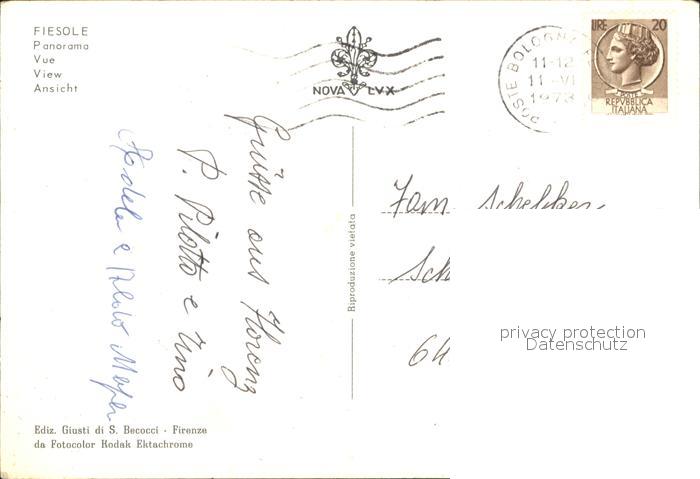 FIESOLE
Panorama
Vue
View
Ansicht
NOVA LVX
POSTE BOLOGNA
11-12
11-VI
1973
LIRE 20
POSTE
REPVBBLICA
ITALIANA
Grüsse aus Florenz
P. Pilotto e Tino
Riproduzione vietata
Fam
Sch
64
privacy protection
Datenschutz
Ediz. Giusti di S. Becocci - Firenze
da Fotocolor Kodak Ektachrome